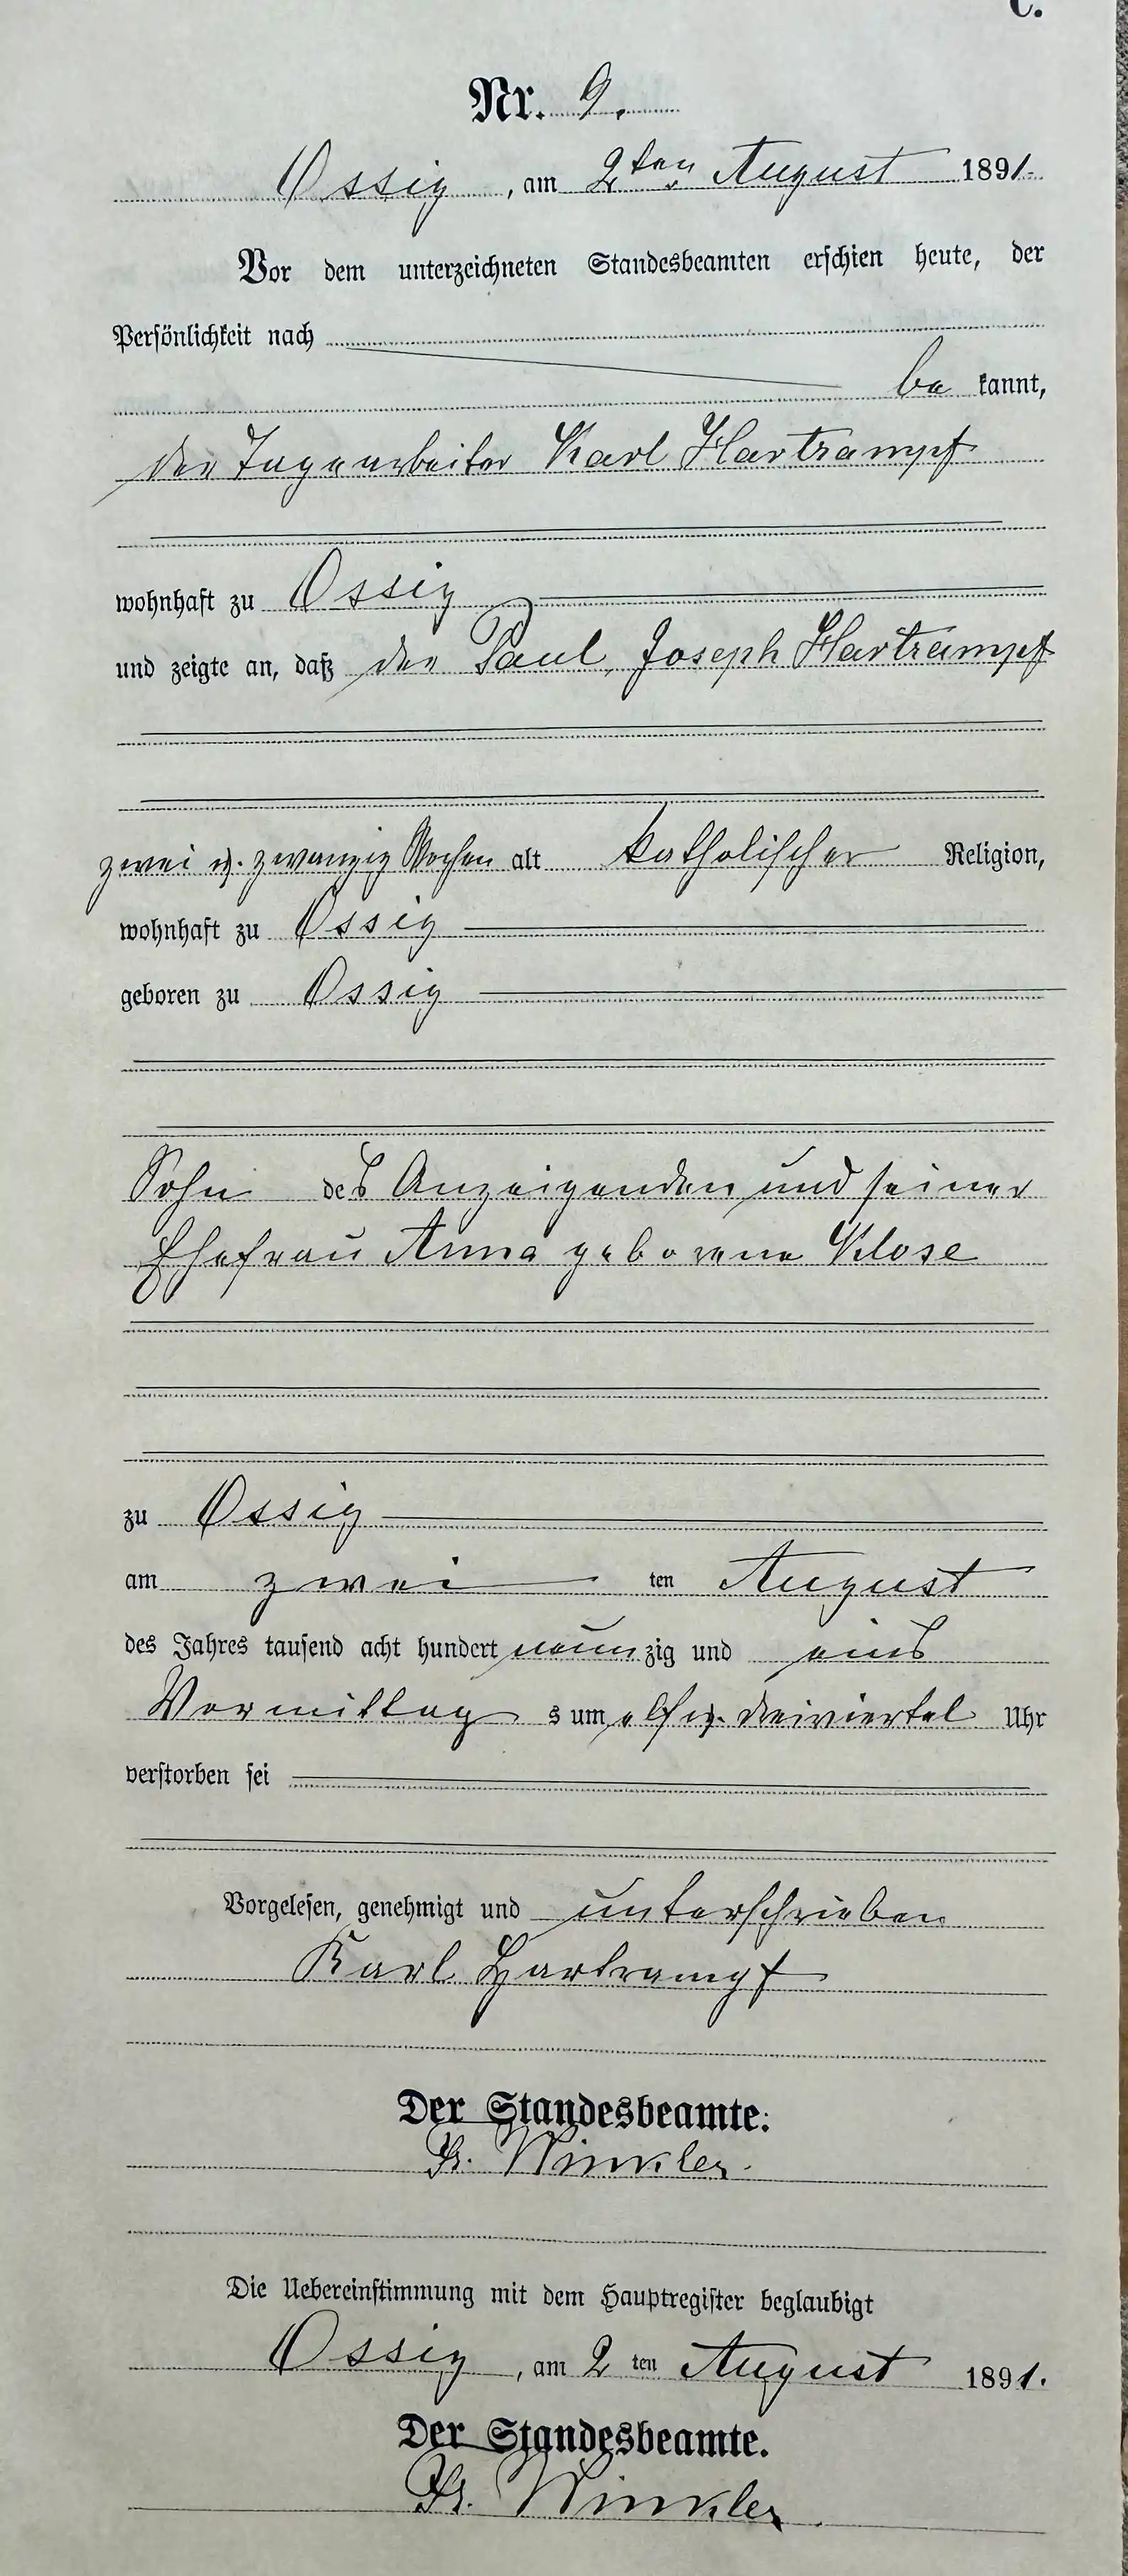 C.
Nr. 9.
Ossig, am 2ten August 1891.
Vor dem unterzeichneten Standesbeamten erschien heute, der
Persönlichkeit nach
be kannt,
der Tagearbeiter Karl Hartrampf
wohnhaft zu Ossig
und zeigte an, daß der Paul, Joseph Hartrampf
zwei u. zwanzig Wochen alt katholischer Religion,
wohnhaft zu Ossig
geboren zu Ossig
Sohn des Anzeigenden und seiner
Ehefrau Anna geborene Klose
zu Ossig
am zwei ten August
des Jahres tausend acht hundert neunzig und eins
Vormittag s um elf u. dreiviertel Uhr
verstorben sei
Vorgelesen, genehmigt und unterschrieben
Karl Hartrampf
Der Standesbeamte.
Fr. Winkler.
Die Uebereinstimmung mit dem Hauptregister beglaubigt
Ossig, am 2 ten August 1891.
Der Standesbeamte.
Fr. Winkler